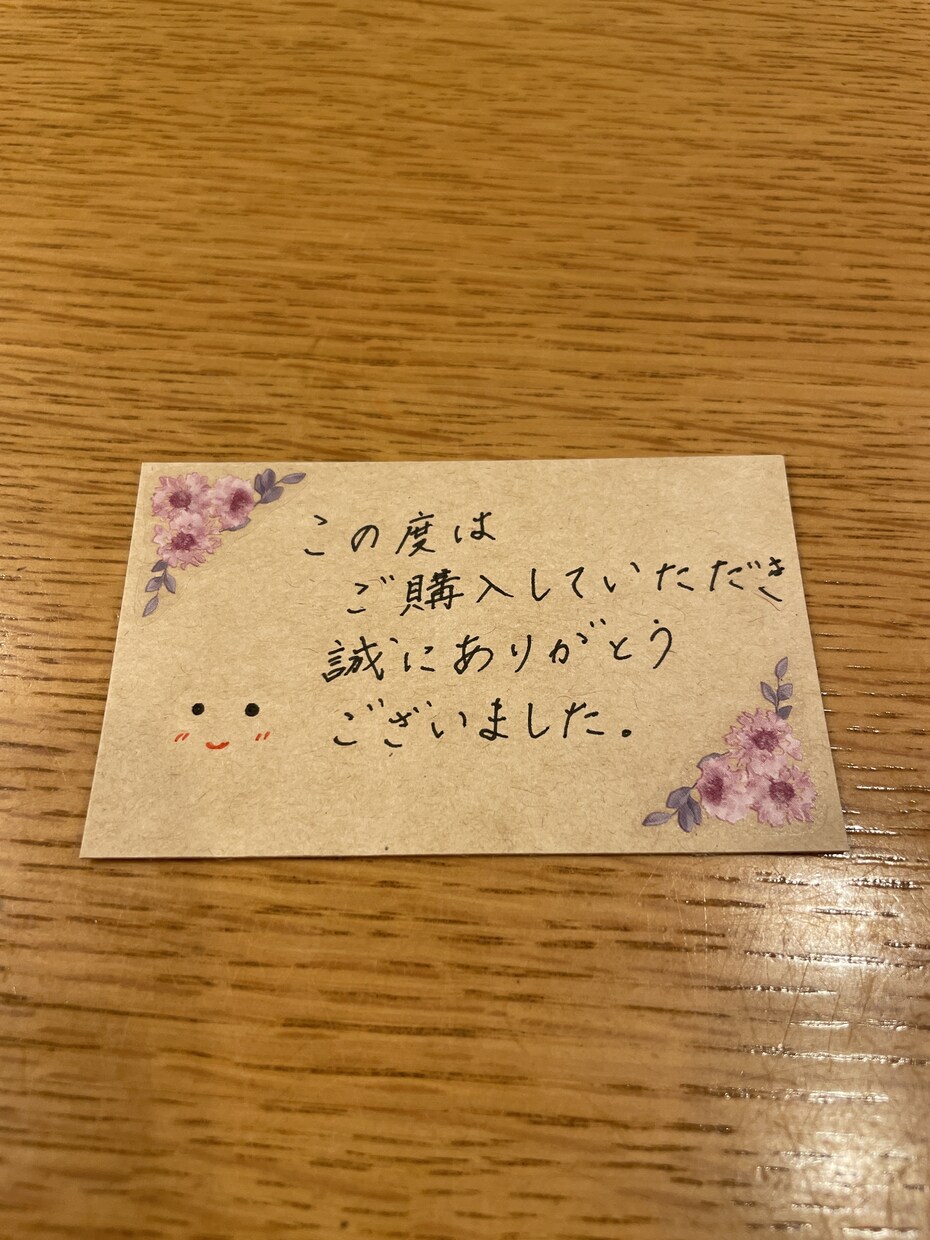 この度は
ご購入していただき
誠にありがとう
ございました。